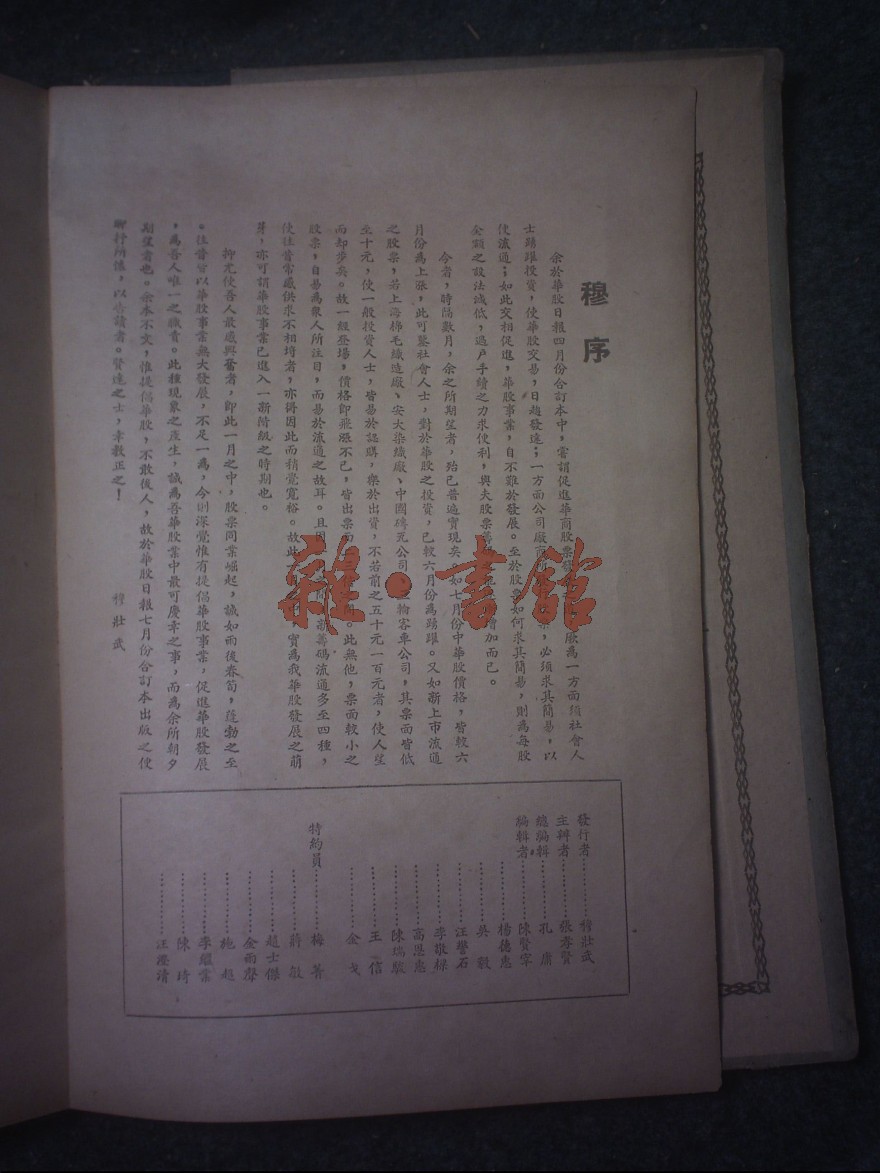 穆序
余於華股日報四月份合訂本中,嘗謂促進華商股票發
厥為一方面須社會人
士踴躍投資,使華股交易,日趨發達;一方面公司廠商所
票,必須求其簡易,以
使流通;如此交相促進,華股事業,自不難於發展。至於股票如何求其簡易,則為每股
金額之設法減低,過戶手續之力求便利,與夫股票籌
增加而已。
今者,時隔數月,余之所期望者,殆已普遍實現矣
如七月份中華股價格,皆較六
月份為上漲,此可鑒社會人士,對於華股之投資,已較六月份為踴躍。又如新上市流通
之股票,若上海棉毛織造廠、安大染織廠、中國磚瓦公司
輪客車公司,其票面皆低
至十元,使一般投資人士,皆易於認購,樂於出資,不若前之五十元一百元者,使人望
而却步矣。故一經登場,價格即飛漲不已,皆出票面
。此無他,票面較小之
股票,自易為衆人所注目,而易於流通之故耳。且因
籌碼流通多至四種,
使往昔常感供求不相埒者,亦得因此而稍覺寬裕。故此
,實為我華股發展之萌
芽,亦可謂華股事業已進入一新階級之時期也。
抑尤使吾人最感興奮者,即此一月之中,股票同業崛起,誠如雨後春筍,蓬勃之至
。往昔皆以華股事業無大發展,不足一為,今則深覺惟有提倡華股事業,促進華股發展
,為吾人唯一之職責。此種現象之產生,誠為吾華股業中最可慶幸之事,而為余所朝夕
期望者也。余本不文,惟提倡華股,不敢後人,故於華股日報七月份合訂本出版之便
聊抒所懷,以告讀者。賢達之士,幸教正之!
穆壯武
發行者…………穆壯武
主辦者…………張壽賢
總編輯…………孔庸
編輯者…………陳賢宰
…………楊德惠
…………吳毅
…………汪譽石
…………李敬椂
…………高恩惠
…………陳瑞駿
…………王信
…………金戈
特約員…………梅菁
…………蔣毅
…………趙士傑
…………金雨聲
…………施超
…………李繼業
…………陳琦
…………汪澄清
雜·書館